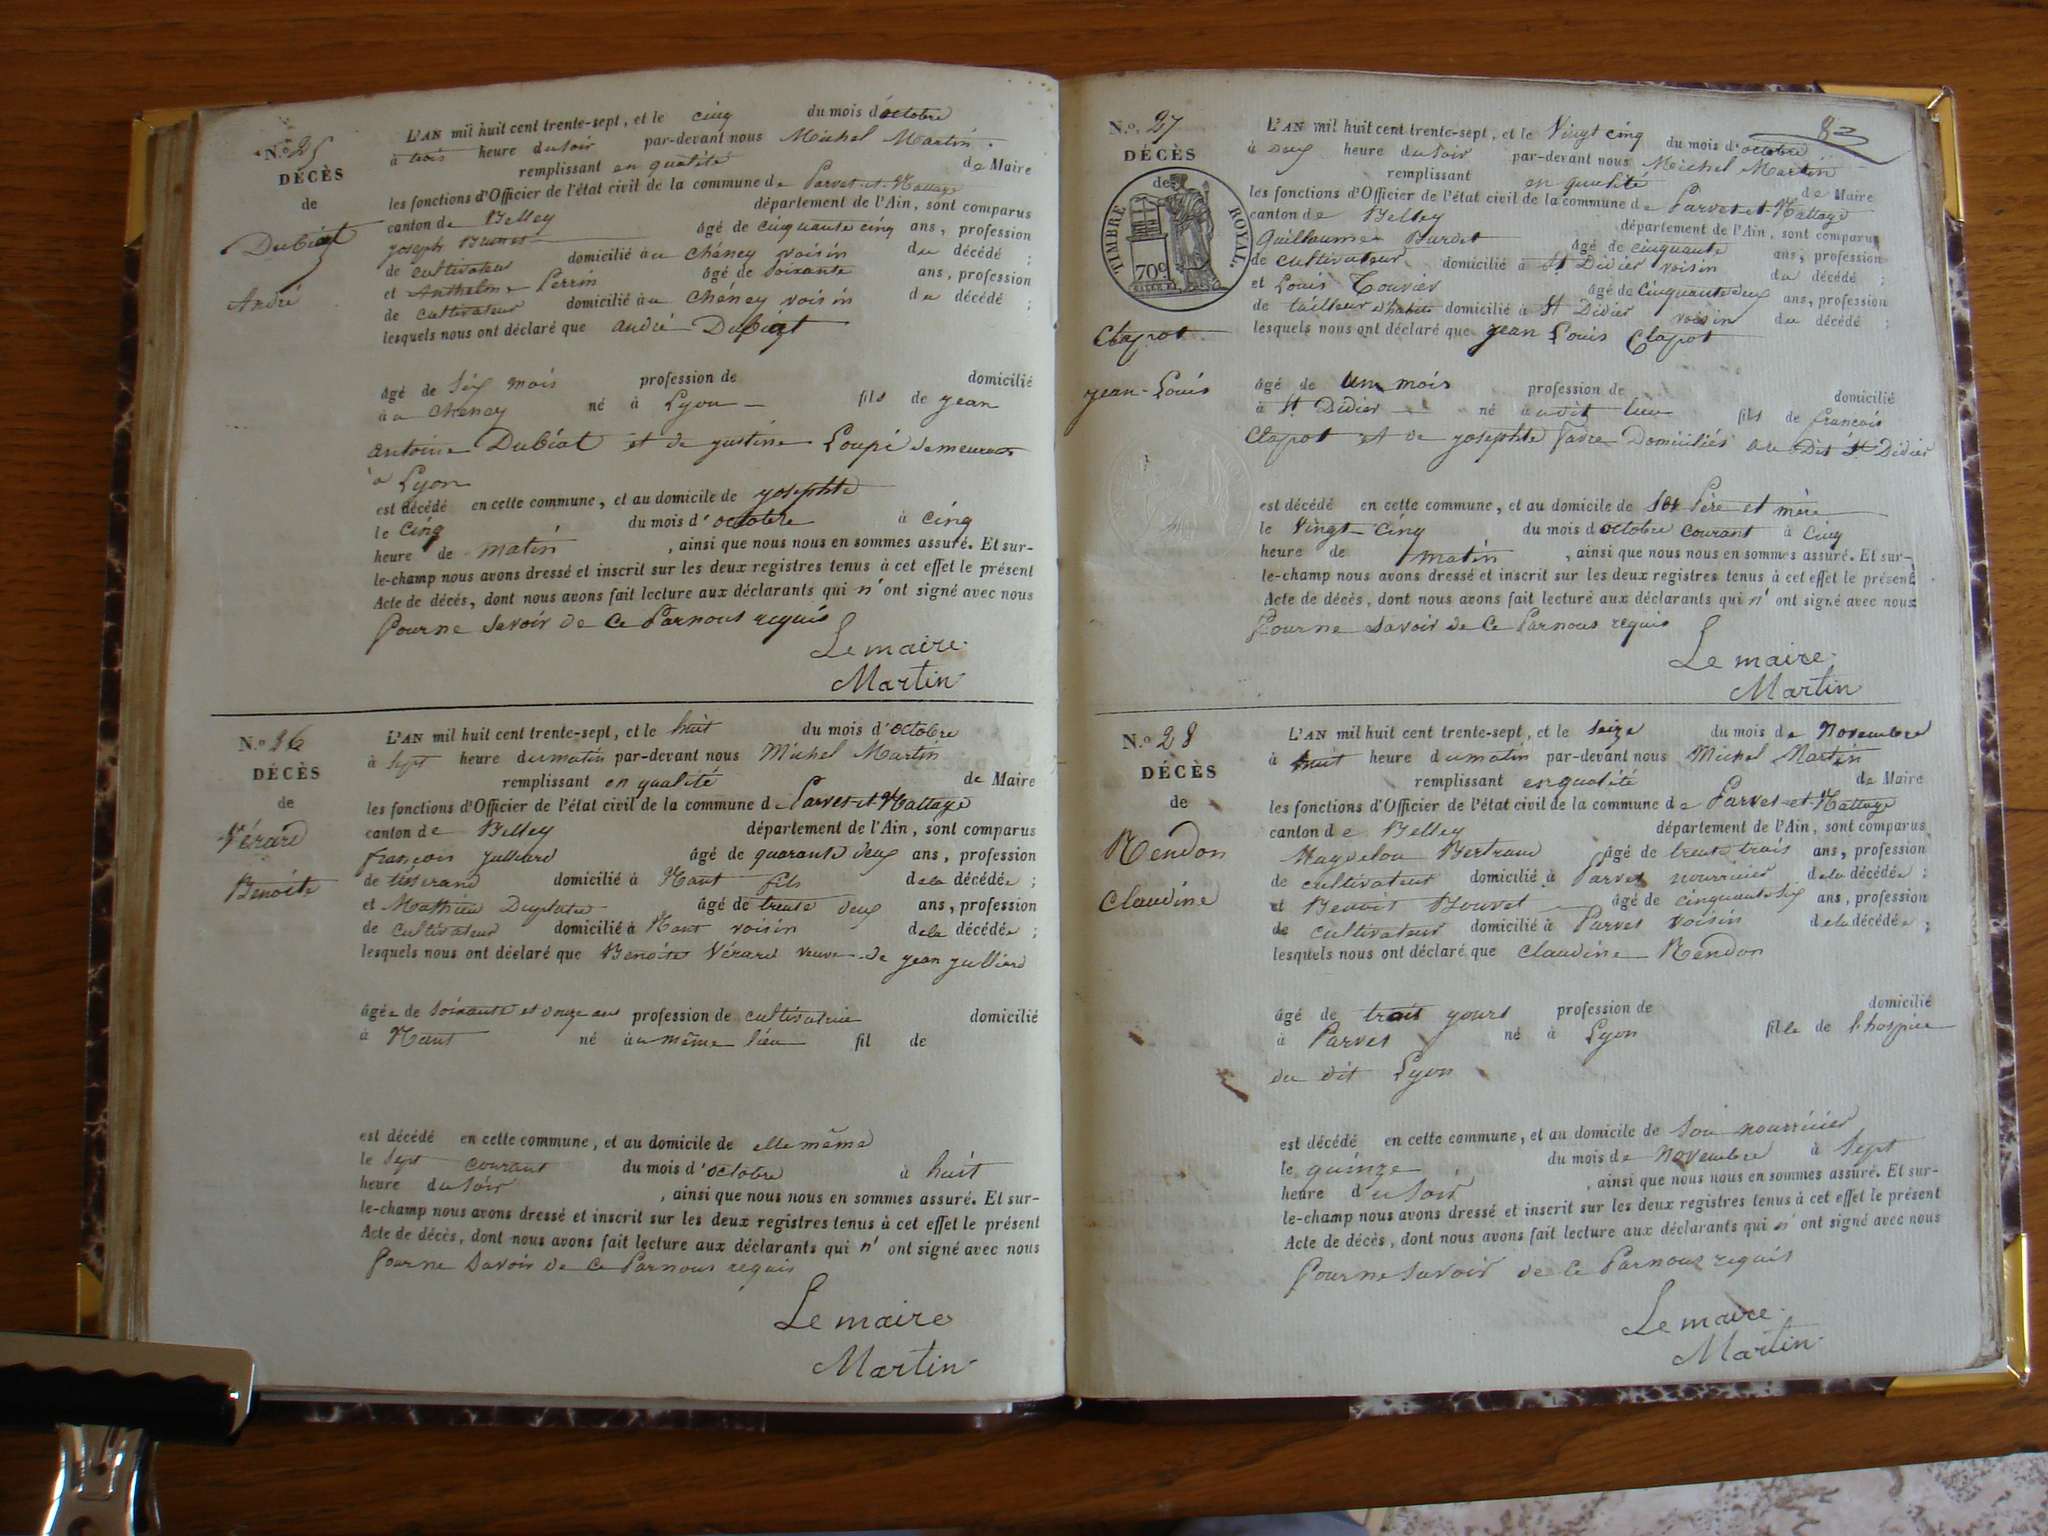 N.º 25
DÉCÈS
de
Dubiat
André
L'AN mil huit cent trente-sept, et le cinq du mois d'octobre
à trois heure du soir par-devant nous Michel Martin
remplissant en qualité de Maire
les fonctions d'Officier de l'état civil de la commune de Parves et Nattage
canton de Belley département de l'Ain, sont comparus
joseph Brunet âgé de cinquante cinq ans, profession
de cultivateur domicilié àu Chéney voisin du décédé ;
et Anthelme Perrin âgé de soixante ans, profession
de cultivateur domicilié àu Chéney voisin du décédé ;
lesquels nous ont déclaré que andré Dubiat
âgé de six mois profession de domicilié
àu Cheney né à Lyon fils de jean
antoine Dubiat et de justine Loupi demeurant
à Lyon
est décédé en cette commune, et au domicile de josephte
le cinq du mois d'octobre à cinq
heure de matin , ainsi que nous nous en sommes assuré. Et sur-
le-champ nous avons dressé et inscrit sur les deux registres tenus à cet effet le présent
Acte de décès, dont nous avons fait lecture aux déclarants qui n'ont signé avec nous
Pour ne Savoir de Ce Par nous requis
Le maire
Martin
N.º 26
DÉCÈS
de
Vérard
Benoite
L'AN mil huit cent trente-sept, et le huit du mois d'octobre
à sept heure du matin par-devant nous Michel Martin
remplissant en qualité de Maire
les fonctions d'Officier de l'état civil de la commune de Parves et Nattage
canton de Belley département de l'Ain, sont comparus
françois julliard âgé de quarante deux ans, profession
de tisserand domicilié à Nant fils de la décédée ;
et Mathieu âgé de trente deux ans, profession
de cultivateur domicilié à Nant voisin de la décédée ;
lesquels nous ont déclaré que Benoite Vérard veuve de jean julliard
âgée de soixante et onze ans profession de cultivatrice domicilié
à Nant né àu même lieu fil de
est décédé en cette commune, et au domicile de elle même
le sept courant du mois d'octobre à huit
heure du soir , ainsi que nous nous en sommes assuré. Et sur-
le-champ nous avons dressé et inscrit sur les deux registres tenus à cet effet le présent
Acte de décès, dont nous avons fait lecture aux déclarants qui n'ont signé avec nous
Pour ne Savoir de Ce Par nous requis
Le maire
Martin
8
N.º 27
DÉCÈS
de
TIMBRE ROYAL.
70c
Clapot
jean-Louis
L'AN mil huit cent trente-sept, et le Vingt cinq du mois d'octobre
à six heure du soir par-devant nous Michel Martin
remplissant en qualité de Maire
les fonctions d'Officier de l'état civil de la commune de Parves et Nattage
canton de Belley département de l'Ain, sont comparus
Guillaume Burdet âgé de cinquante ans, profession
de cultivateur domicilié à St Didier voisin du décédé ;
et Louis Touvier âgé de cinquante deux ans, profession
de tailleur d'habits domicilié à St Didier voisin du décédé ;
lesquels nous ont déclaré que jean Louis Clapot
âgé de un mois profession de domicilié
à St Didier né à udit lieu fils de françois
Clapot et de josephte favre Domiciliés au Dit St Didier
est décédé en cette commune, et au domicile de ses Père et mère
le Vingt-cinq du mois d'octobre courant à cinq
heure de matin , ainsi que nous nous en sommes assuré. Et sur-
le-champ nous avons dressé et inscrit sur les deux registres tenus à cet effet le présent
Acte de décès, dont nous avons fait lecture aux déclarants qui n'ont signé avec nous
Pour ne Savoir de Ce Par nous requis
Le maire
Martin
N.º 28
DÉCÈS
de
Rendon
Claudine
L'AN mil huit cent trente-sept, et le seize du mois de Novembre
à huit heure du matin par-devant nous Michel Martin
remplissant en qualité de Maire
les fonctions d'Officier de l'état civil de la commune de Parves et Nattage
canton de Belley département de l'Ain, sont comparus
Bertrand âgé de trente trois ans, profession
de cultivateur domicilié à Parves nourricier de la décédée ;
et Benoit Bouvet âgé de cinquante six ans, profession
de cultivateur domicilié à Parves voisin de la décédée ;
lesquels nous ont déclaré que claudine Rendon
âgé de trois jours profession de domicilié
à Parves né à Lyon fille de l'hospice
du dit Lyon
est décédé en cette commune, et au domicile de son nourricier
le quinze du mois de novembre à sept
heure du soir , ainsi que nous nous en sommes assuré. Et sur-
le-champ nous avons dressé et inscrit sur les deux registres tenus à cet effet le présent
Acte de décès, dont nous avons fait lecture aux déclarants qui n'ont signé avec nous
Pour ne Savoir de Ce Par nous requis
Le maire
Martin